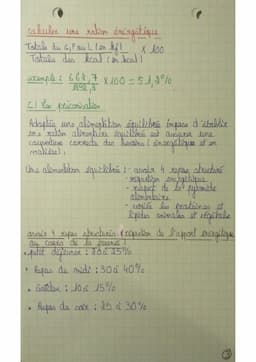 calculer une ration énergétique
Totale du G, P ou L (en kJ) x 100
Totale des kcal (en kcal)
exemple : 664,7 x 100 = 51,3%
C) Les préconisation
Adopter une alimentation équilibré impose d'établir
une ration alimentaire équilibré est assure une
couverture correcte des besoins (énergétique et en
matière).
Une alimentation équilibré : - avoir 4 repas structuré
- répartition énergétique
- respect de la pyramide
alimentaire
- les protéines et
lipides animales et végétale
avoir 4 repas structurés : répartition de l'apport énergétique
au cours de la journée :
• petit déjeuner : 20 à 25%
• Repas du midi : 30 à 40%
• Goûter : 10 à 15%
• Repas du soir : 25 à 30%